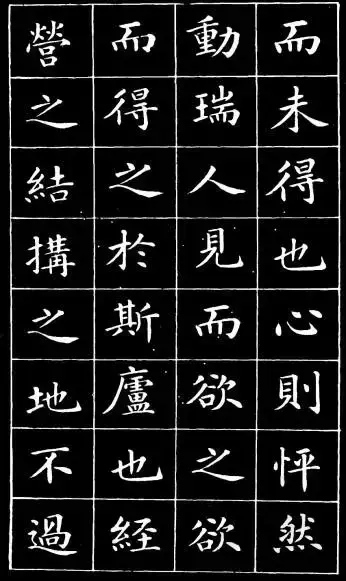 而未得也心則怦然
動瑞人見而欲之欲
而得之於斯廬也経
營之結搆之地不過